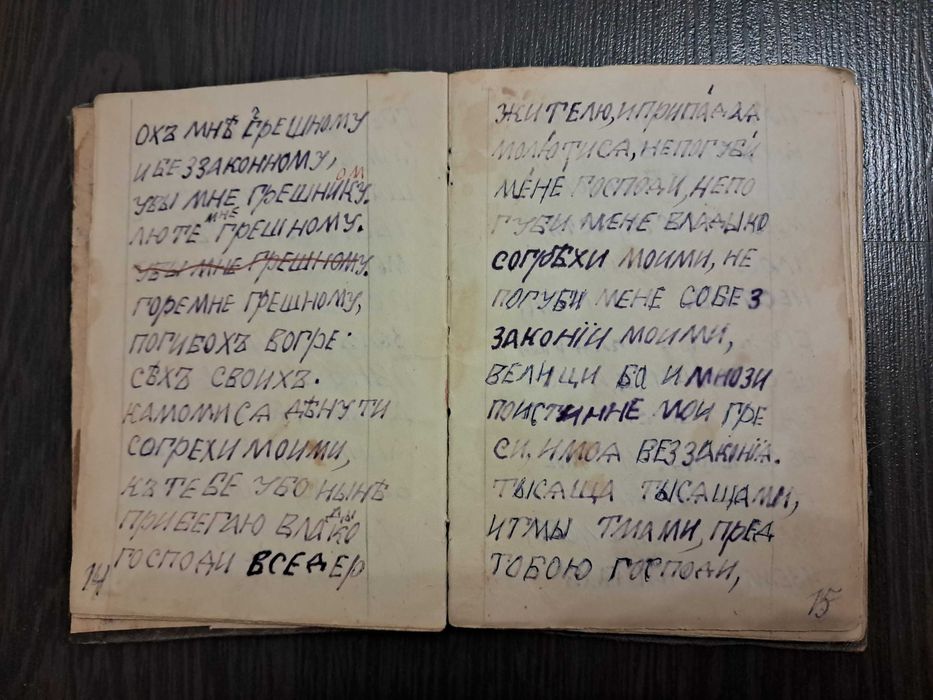 ОХЪ МНѢ ГРЕШНОМУ
И БЕЗЗАКОННОМУ,
УВЫ МНЕ ГРЕШНИКУ. ОМ
ЛЮТЕ МНЕ ГРЕШНОМУ.
УВЫ МНЕ ГРЕШНОМУ.
ГОРЕ МНЕ ГРЕШНОМУ,
ПОГИБОХЪ ВОГРЕ:
СѢХЪ СВОИХЪ.
КАМОМИСА ДѢНУТИ
СОГРЕХИ МОИМИ,
КЪ ТЕБЕ УБО НЫНѢ
ПРИБЕГАЮ ВЛАДЫКО
ГОСПОДИ ВСЕДЕР
14
ЖИТЕЛЮ, И ПРИПАДАА
МОЛЮТИСА, НЕПОГУБИ
МЕНЕ ГОСПОДИ, НЕПО
ГУБИ МЕНЕ ВЛАДЫКО
СОГРѢХИ МОИМИ, НЕ
ПОГУБИ МЕНЕ СОБЕЗ
ЗАКОНІИ МОИМИ,
ВЕЛИЦИ БО И МНОЗИ
ПОИСТИННЕ МОИ ГРЕ
СИ. И МОА БЕЗЗАКОНІА.
ТЫСАЩА ТЫСАЩАМИ,
И ТМЫ ТМАМИ, ПРЕД
ТОБОЮ ГОСПОДИ,
15